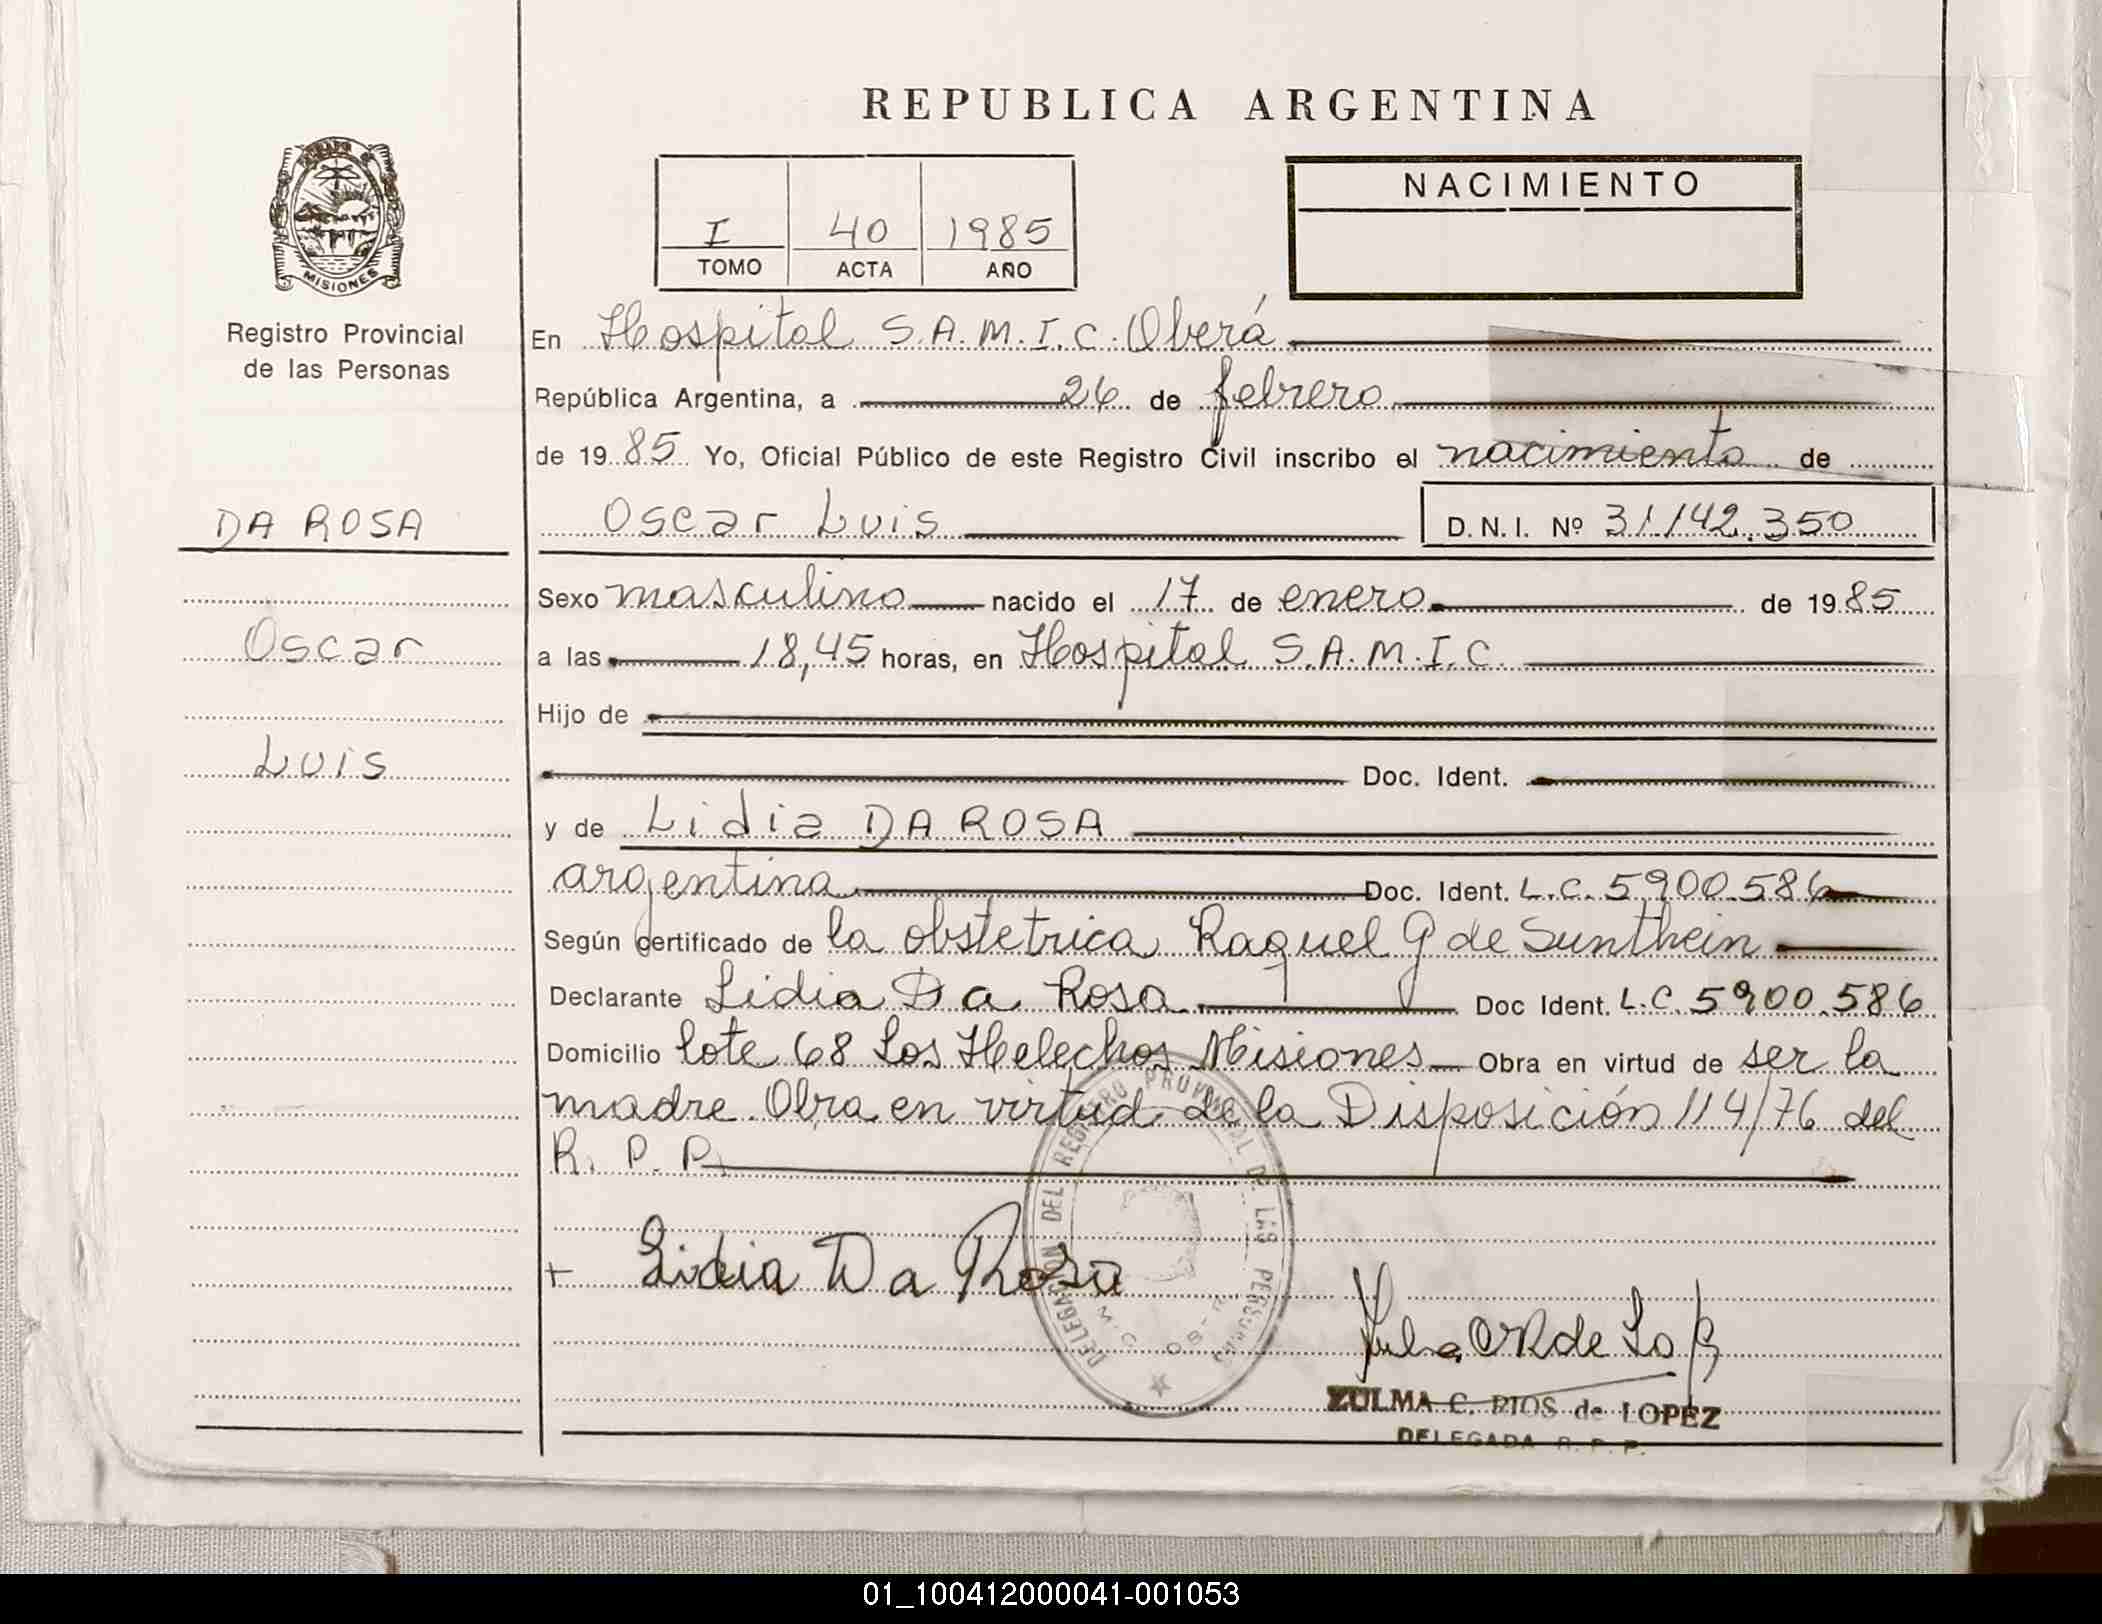 REPUBLICA ARGENTINA
MISIONES
Registro Provincial
de las Personas
I 40 1985
TOMO ACTA AÑO
NACIMIENTO
En Hospital S.A.M.I.C. Oberá
República Argentina, a 26 de febrero
de 1985 Yo, Oficial Público de este Registro Civil inscribo el nacimiento de
DA ROSA
Oscar Luis D.N.I. Nº 31.142.350
Sexo masculino nacido el 17 de enero de 1985
Oscar
a las 18,45 horas, en Hospital S.A.M.I.C.
Hijo de
Luis
Doc. Ident.
y de Lidia DA ROSA
argentina Doc. Ident. L.C. 5.900.586
Según certificado de la obstetrica Raquel G de Sunthein
Declarante Lidia Da Rosa Doc Ident. L.C. 5.900.586
Domicilio lote 68 Los Helechos Misiones Obra en virtud de ser la
madre. Obra en virtud de la Disposición 114/76 del
R. P. P.
DELEGACION DEL REGISTRO PROVINCIAL DE LAS PERSONAS
+ Lidia Da Rosa
ZULMA C. RIOS de LOPEZ
DELEGADA R. P. P.
01_100412000041-001053